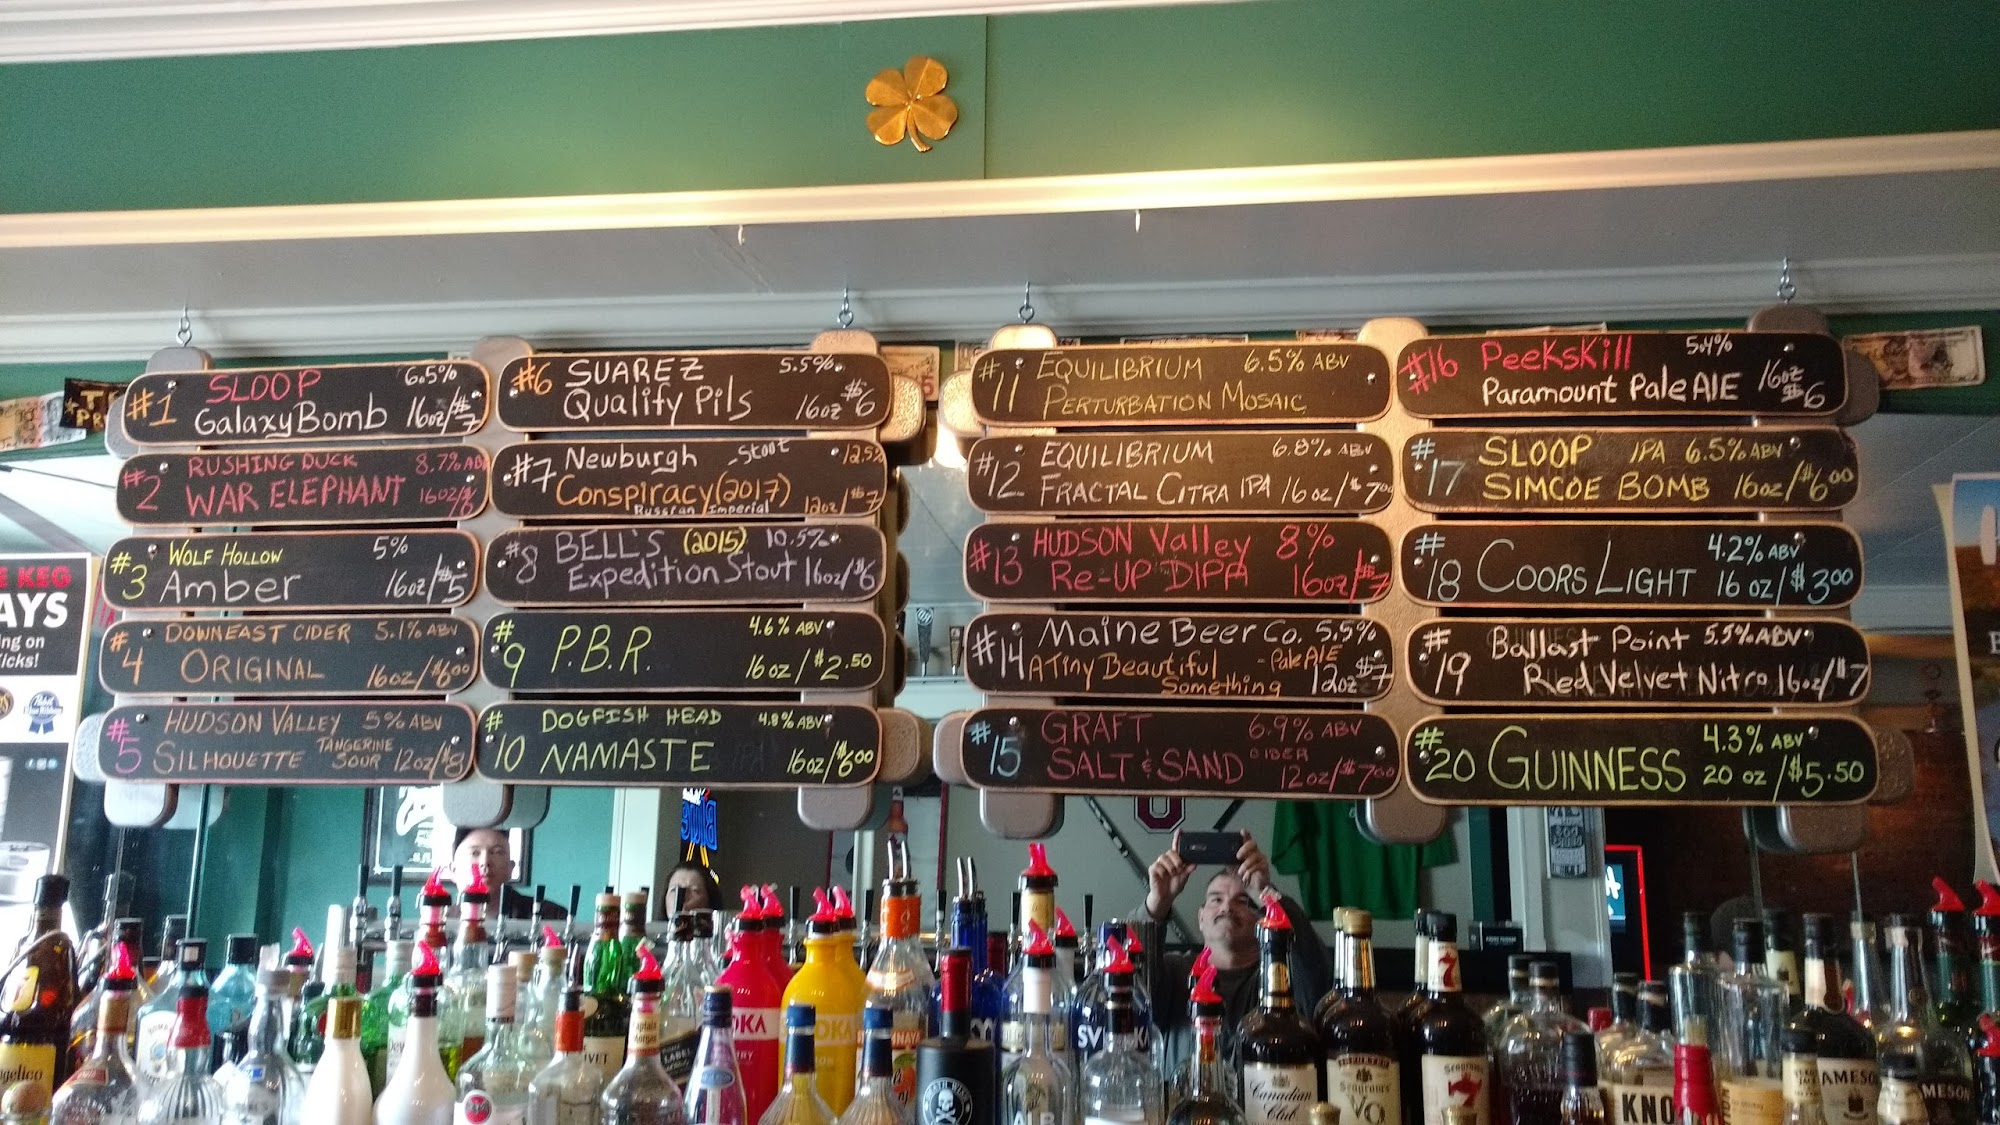 #1 SLOOP 6.5%
GalaxyBomb 16oz/$7
#2 RUSHING DUCK 8.7% AB
WAR ELEPHANT 16oz/$8
#3 WOLF HOLLOW 5%
Amber 16oz/$5
#4 DOWNEAST CIDER 5.1% ABV
ORIGINAL 16oz/$6.00
#5 HUDSON VALLEY 5% ABV
SILHOUETTE TANGERINE SOUR 12oz/$8
#6 SUAREZ 5.5%
Qualify Pils 16oz $6
#7 Newburgh -Stout 12.5%
Conspiracy (2017)
Russian Imperial 12oz/$7
#8 BELL'S (2015) 10.5%
Expedition Stout 16oz/$6
#9 P.B.R. 4.6% ABV
16oz/$2.50
#10 DOGFISH HEAD 4.8% ABV
NAMASTE 16oz/$6.00
#11 EQUILIBRIUM 6.5% ABV
PERTURBATION MOSAIC
#12 EQUILIBRIUM 6.8% ABV
FRACTAL CITRA IPA 16oz/$7.00
#13 HUDSON Valley 8%
Re-UP DIPA 16oz/$7
#14 Maine Beer Co. 5.5%
A Tiny Beautiful -Pale AlE
Something 12oz $7
#15 GRAFT 6.9% ABV
SALT & SAND CIDER 12oz/$7.00
#16 Peekskill 5.4%
Paramount Pale AlE 16oz $6
#17 SLOOP IPA 6.5% ABV
SIMCOE BOMB 16oz/$6.00
#18 COORS LIGHT 4.2% ABV
16oz/$3.00
#19 Ballast Point 5.5% ABV
Red Velvet Nitro 16oz/$7
#20 GUINNESS 4.3% ABV
20 oz/$5.50
E KEG
AYS
ng on
icks!
Canadian
Club
Seagram's
VO
Seagram's
7
SV
KNO
AMES
MESON